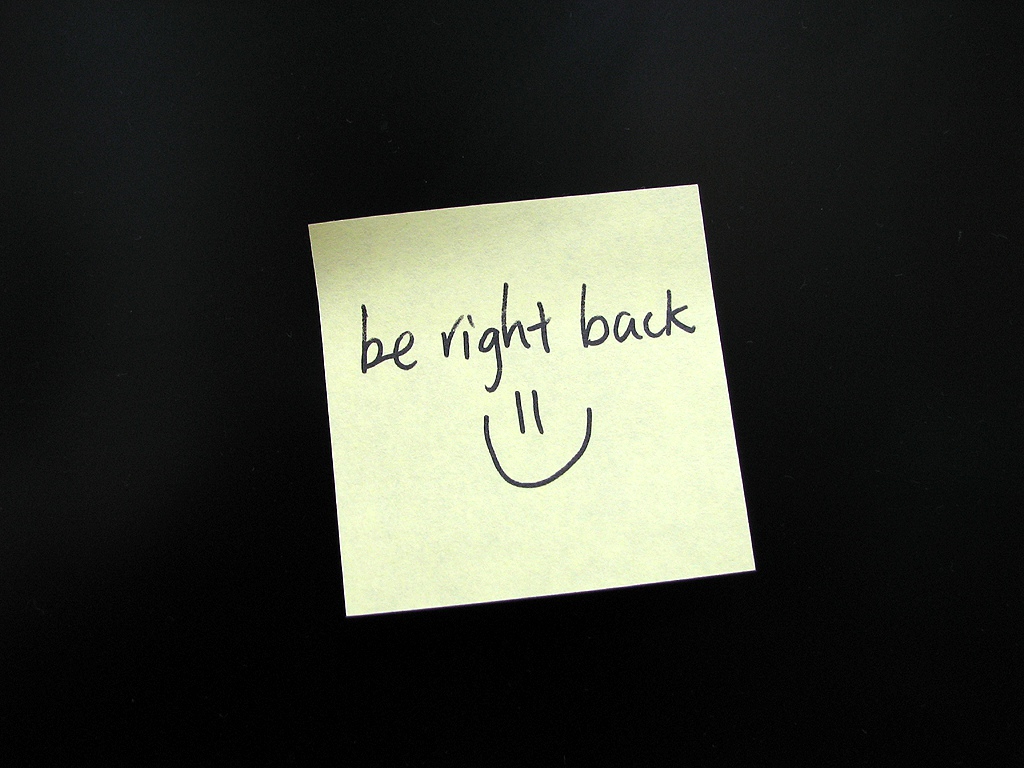 be right back